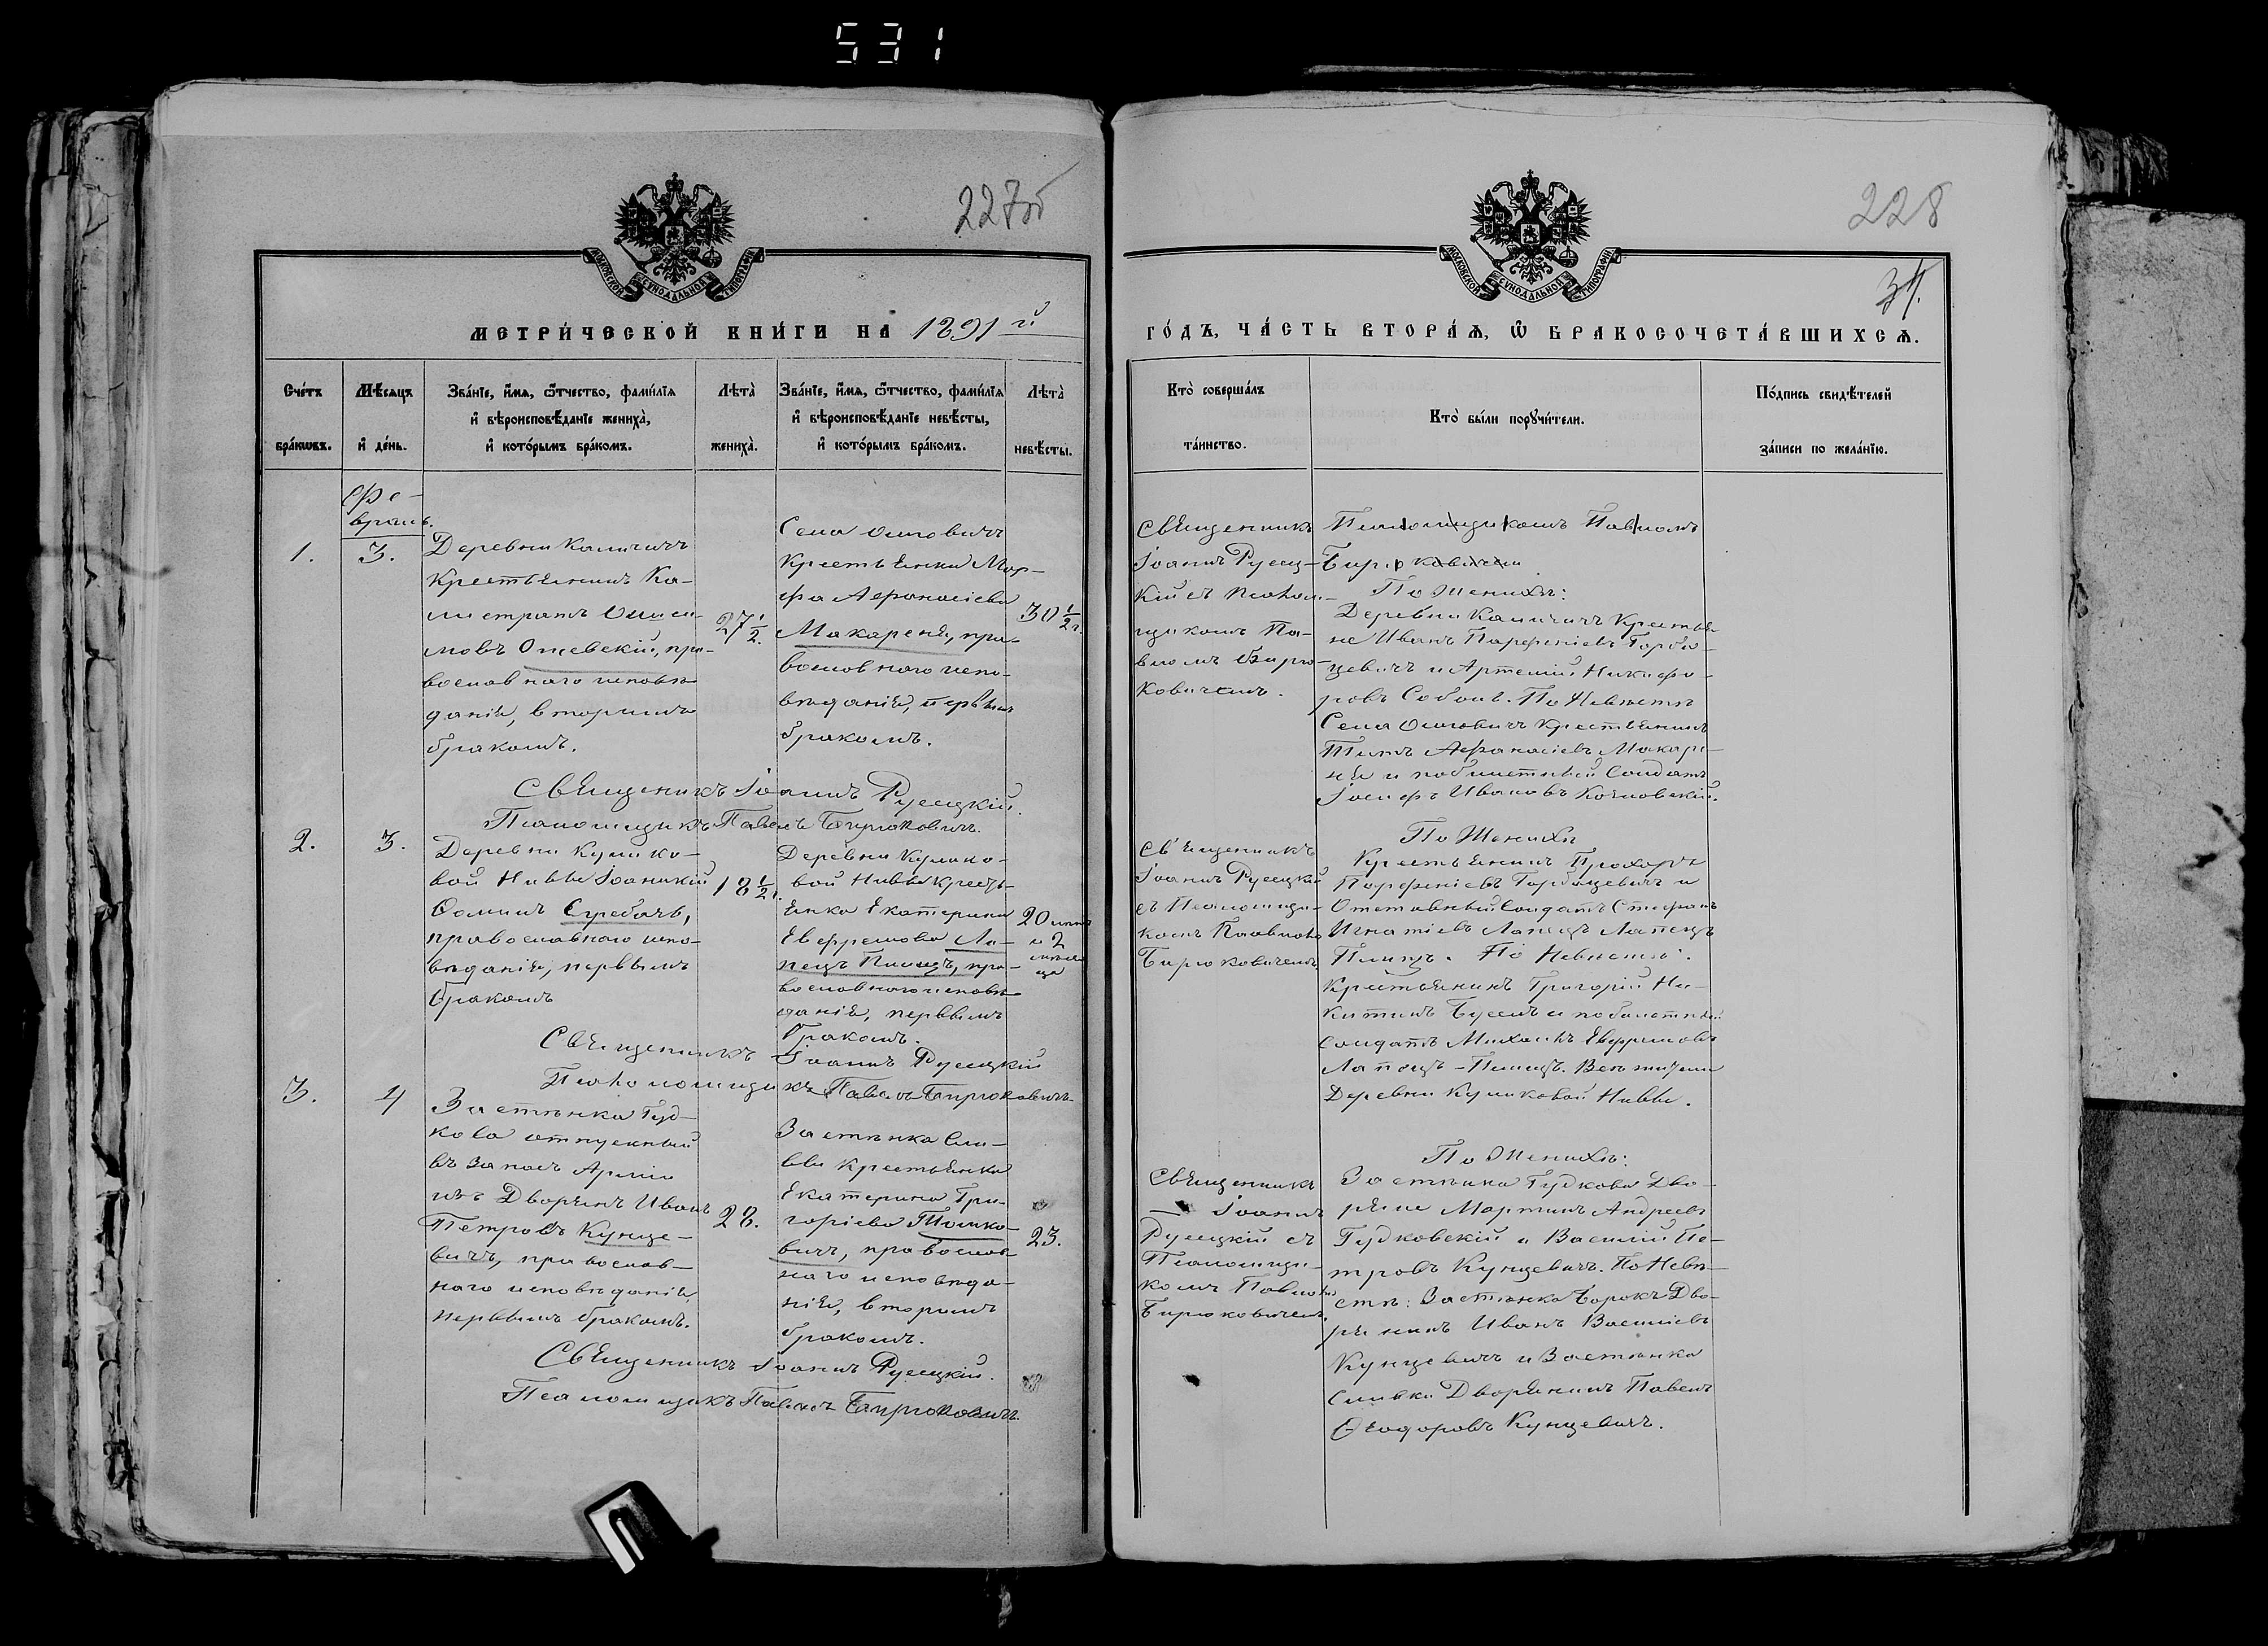 531
227об
228
34.
МОСКОВСКОЙ СѴНОДАЛЬНОЙ ТИПОГРАФІИ
МОСКОВСКОЙ СѴНОДАЛЬНОЙ ТИПОГРАФІИ
МЕТРИ́ЧЕСКОЙ КНИ́ГИ НА 1891й
ГО́ДЪ, ЧА́СТЬ ВТОРА́Ѧ, Ѽ БРАКОСОЧЕТА́ВШИХСѦ.
Сче́тъ
бра́кѡвъ.
Мѣ́сяцъ
и҆ де́нь.
Зва́нїе, и҆́мѧ, ѻ҆́тчество, фами́лїѧ
и҆ вѣроисповѣ́данїе жениха̀,
и҆ кото́рымъ бра́комъ.
Лѣта̀
жениха̀.
Зва́нїе, и҆́мѧ, ѻ҆́тчество, фами́лїѧ
и҆ вѣроисповѣ́данїе невѣ́сты,
и҆ кото́рымъ бра́комъ.
Лѣта̀
невѣ́сты.
Кто̀ соверша́лъ
та́инство.
Кто̀ бы́ли порꙋчи́тели.
По́дпись свидѣ́телей
за́писи по жела́нїю.
Фе-
враль.
1.
3.
Деревни Каличичъ
Крестьянинъ Ка-
листратъ Ониси-
мовъ Ошевскій, пра-
вославнаго исповѣ
данія, вторымъ
бракомъ.
27½.
Села Осовичъ
Крестьянка Мар-
фа Афанасіева
Макареня, пра-
вославнаго испо-
вѣданія, первымъ
бракомъ.
30½г.
Священникъ
Іоаннъ Русец-
кій съ Псалом-
щикомъ Па-
вломъ Бирю-
ковичемъ.
Псаломщикомъ Павломъ
Бирюковичем
По Женихѣ:
Деревни Каличичъ Крестья-
не Иванъ Парфеніевъ Горба-
цевичъ и Артемій Никифо-
ровъ Соболь. По Невѣстѣ
Села Осовичъ Крестьянинъ
Титъ Афанасіевъ Макаре-
ня и побилетный Солдатъ
Іосифъ Ивановъ Козловскій.
Священникъ Іоаннъ Русецкій.
Псаломщикъ Павелъ Бирюковичъ.
2.
3.
Деревни Кулико-
вой Нивы Іоанникій
Фоминъ Скребачъ,
православнаго испо-
вѣданія, первымъ
бракомъ
18½.
Деревни Кулико-
вой Нивы Кресть-
янка Екатерина
Евфремова Ла-
пецъ Пилецъ, пра-
вославнаго исповѣ
данія, первымъ
бракомъ.
20 лѣтъ
и 2
мѣся
ца
Священникъ
Іоаннъ Русецкій
съ Псаломщи-
комъ Павломъ
Бирюковичемъ
По Женихѣ
Крестьянинъ Прохоръ
Парфеніевъ Горбацевичъ и
Отставный Солдатъ Стефанъ
Игнатіевъ Лапецъ Лапецъ
Пилецъ. По Невѣстѣ:
Крестьянинъ Григорій Ни-
китинъ Буселъ и побилетный
Солдатъ Михаилъ Евфремовъ
Лапецъ-Пилецъ. Всѣ жители
Деревни Куликовой Нивы.
Священникъ Іоаннъ Русецкій
Псаломщикъ Павелъ Бирюковичъ
3.
4
Застѣнка Гуд-
кова отпускный
въ Запасъ Арміи
изъ Дворянъ Иванъ
Петровъ Кунце-
вичъ, православ-
наго исповѣданія,
первымъ бракомъ.
28.
Застѣнка Сли-
вки Крестьянка
Екатерина Гри-
горіева Томко-
вичъ, православ
наго исповѣда-
нія, вторымъ
бракомъ.
23.
Священникъ
Іоаннъ
Русецкій съ
Псаломщи-
комъ Павломъ
Бирюковичемъ.
По Женихѣ:
Застѣнка Гудкова Дво-
ряне Мартинъ Андреевъ
Гудковскій и Василій Пе-
тровъ Кунцевичъ. По Невѣ-
стѣ: Застѣнка Борокъ Дво-
рянинъ Иванъ Васильевъ
Кунцевичъ и Застѣнка
Сливки Дворянинъ Павелъ
Ѳеодоровъ Кунцевичъ.
Священникъ Іоаннъ Русецкій.
Псаломщикъ Павелъ Бирюковичъ.